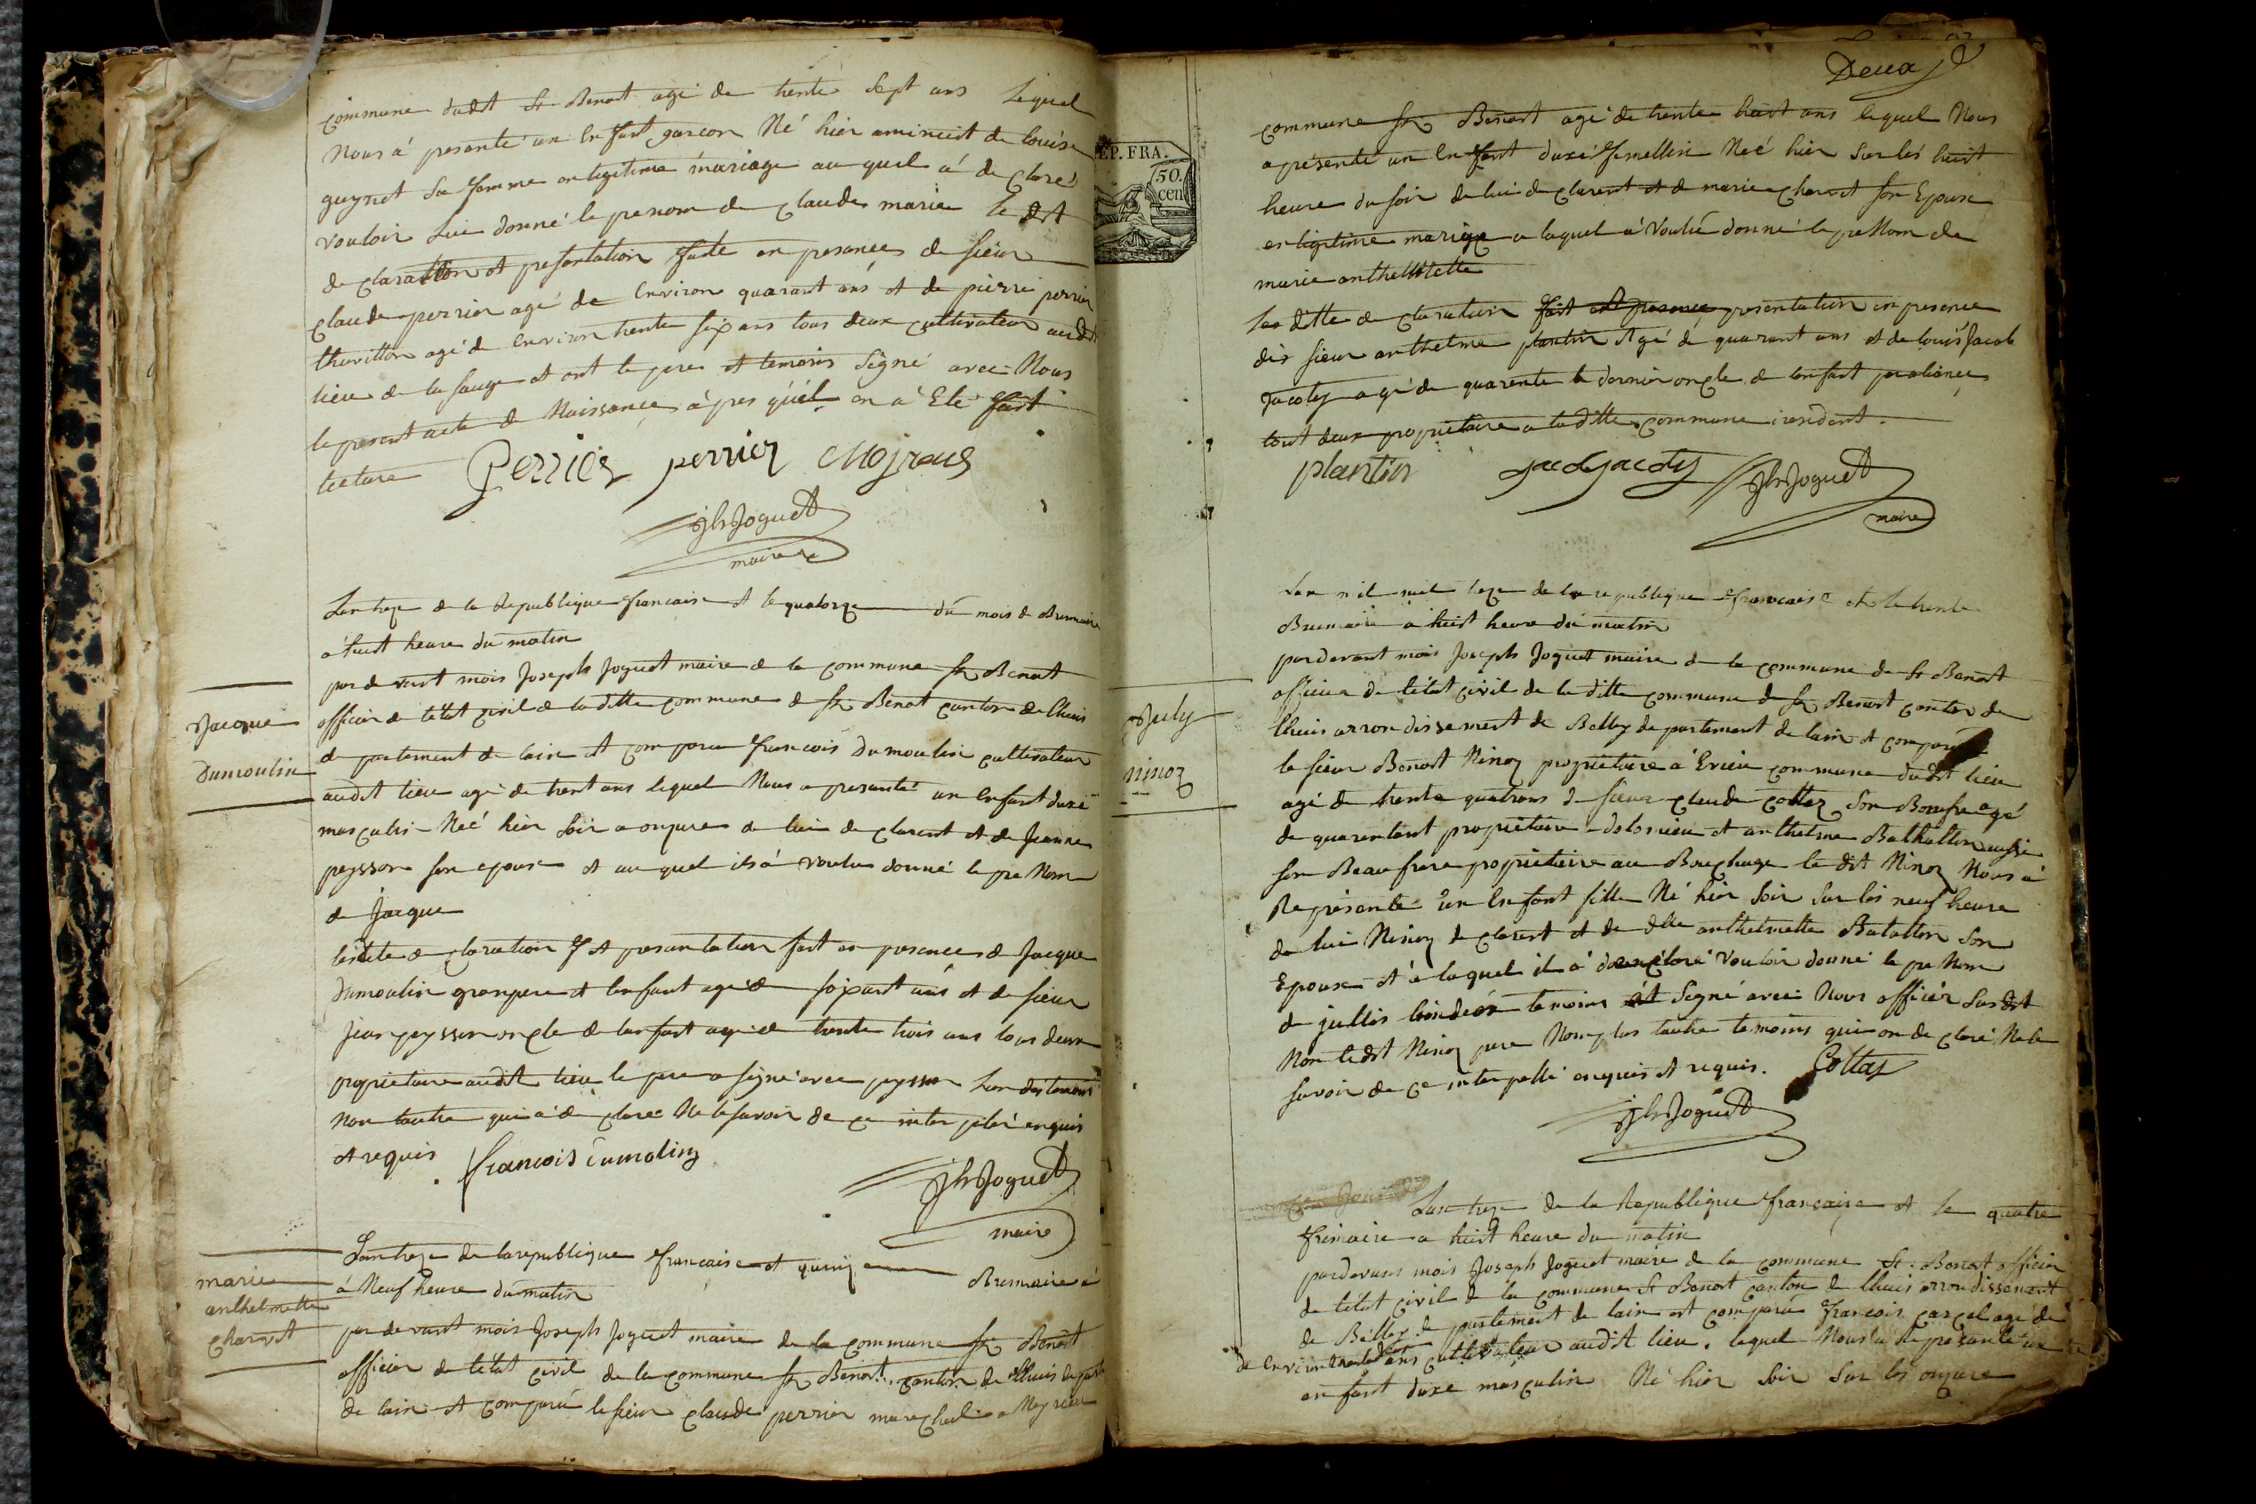 commune dudt St Benoit agé de trente sept ans Lequel
Nous á presenté un Enfant garcon Né hier aminuit de louise
guynet Sa femme en legitime mariage au quel á de claré
vouloir Lui donné le prenom de claude marie le dt
de claration et presentation faite en presance de sieur
claude perrier agé de Environ quarant ans et de pierre perrier
thevillon agé de Environ trente six ans tous deux cultivateur audt
lieu de la sauge et ont le pere et temoins Signé avec Nous
le present acte de Naissance á pres qúél en á Eté fait
lecture
Perrier perrier Mojraud
Jh Joguet
maire
Lan treze de la Republique francaise et le quatorze du mois de Brumaire
a huit heure du matin
par de vant mois Joseph Joguet maire de la commune St Benoit
officier de létat civil de la ditte commune de St Benoit canton de lhuis
de partement de lain et comparu francois Dumoulin cultivateur
audit lieu agé de trent ans lequel Nous a presanté un Enfant duxe
masculin Neé hier Soir a onzure de lui de clarent et de Jeanne
peysson son epouse et au quel ils á voulu donné le pre Nom
de Jacque
Jacque
Dumoulin
laditte de claration et presantation fait en presence de Jacque
Dumoulin granpere et lenfant agé de soixant ans et de sieur
Jean peysson oncle de lenfant agé de trente trois ans tous deux
propriétaire audit lieu le pere a signé avec peysson Lun des temoins
Non lautre qui á de claré Ne le savoir de ce inter pélé enquis
et requis
francois dumolin
Jh Joguet
maire
Lan treze de la republique francaise et quinze Brumaire á
á Neuf heure du matin
marie
anthelmette
charvet
par de vant mois Joseph Joguet maire de la commune St Benoit
officier de létat civil de la commune St Benoit canton de lhuis de parte
de lain et comparú le sieur claude perrier marechal a Meyrieu
EP. FRA.
50.
cen
Deux
commune St Benoit agé de trente huit ans lequel Nous
a présenté un Enfant duxe femellin Neé hier Sur lés huit
heure du soir de lui de clarent et de marie charvet son Epouse
en legitime mariage a laquel á Voulú donné le pre Nom de
marie anthelmette
Les ditte de claration fait et presence presentation en presence
dés sieur anthelme plantin Agé de quarant ans et de louis Jacob
Jacoty agé de quarente le dernier oncle de lenfant
tout deux propriétaire a laditte commune résident.
plantin Jacoty Jh Joguet
maire
Lan mil treze de la republique francaise et le trente
Brumaire á huit heure du matin
par devant mois Joseph Joguet maire de la commune de St Benoit
officier de létat civil de la ditte commune de St Benoit canton de
lhuis arrondissement de Belley de partement de lain et comparú
July
ninoz
le sieur Benoit Ninoz propriétaire á Evieu commune dudt lieu
agé de trente quatrans de sieur claude cottaz Son Boaufre agé
de quarentant propriétaire dolomieu et anthelme Balhatton aussi
son Beau frere propriétaire au Bouchage le dt Ninoz Nous á
Représenté un Enfant fille Né hier Soir Sur lés neuf heure
de lui Ninoz de clarent et de dlle anthelmette Batatton Son
Epouse et á laquel il á declaré Vouloir donné le pre Nom
de jullis temoins et Signé avec Nous officiér Susdt
Non le dt Ninoz pere Non plus lautre temoins qui on de claré Ne le
savoir de ce inter pellé enquis et requis. Cottaz
Jh Joguet
Lan treze de la Republique francaise et le quatre
frimaire a huit heure du matin
par devant mois Joseph Joguet maire de la commune St. Benoit officier
de létat civil de la commune St Benoit canton de lhuis arrondissement
de Belley de partement de lain et comparú francois carcel agé de
de Environ trente deux ans cultivateur audit lieu. lequel Nous a Represanté un
enfant duxe masculin Né hier Soir Sur lés onzure